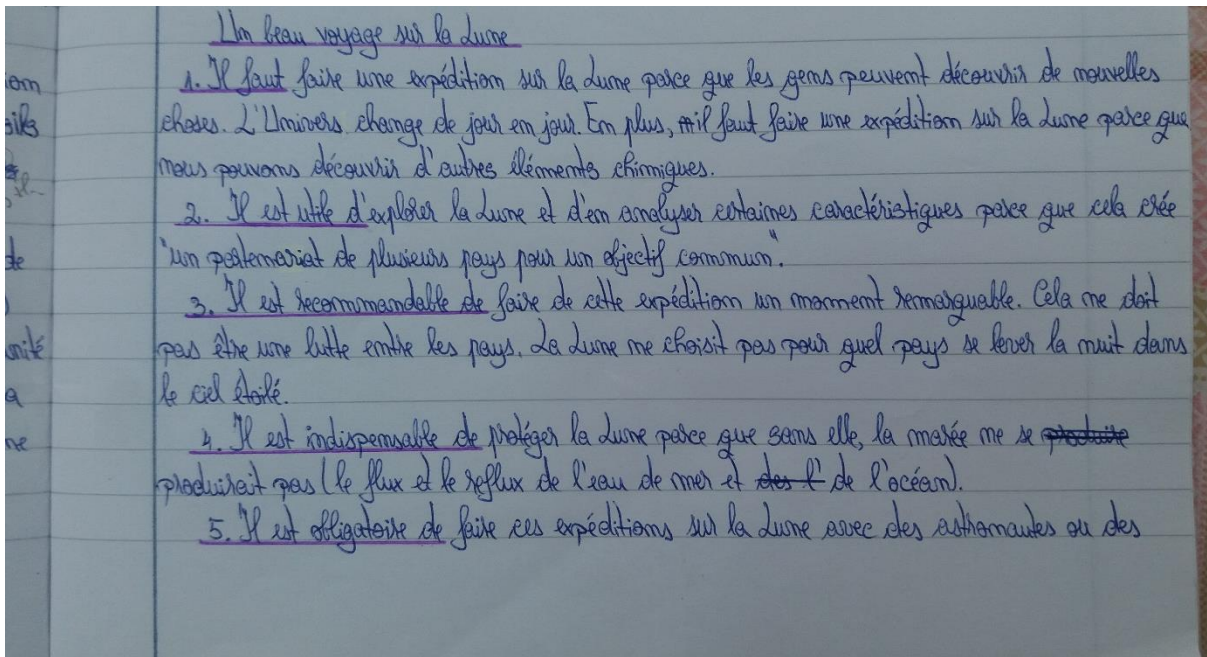 Un beau voyage sur la Lune
1. Il faut faire une expédition sur la Lune parce que les gens peuvent découvrir de nouvelles
choses. L'Univers change de jour en jour. En plus, il faut faire une expédition sur la Lune parce que
nous pouvons découvrir d'autres éléments chimiques.
2. Il est utile d'explorer la Lune et d'en analyser certaines caractéristiques parce que cela crée
"un partenariat de plusieurs pays pour un objectif commun".
3. Il est recommandable de faire de cette expédition un moment remarquable. Cela ne doit
pas être une lutte entre les pays. La Lune ne choisit pas pour quel pays se lever la nuit dans
le ciel étoilé.
4. Il est indispensable de protéger la Lune parce que sans elle, la marée ne se produire
produirait pas (le flux et le reflux de l'eau de mer et des l' de l'océan).
5. Il est obligatoire de faire ces expéditions sur la Lune avec des astronautes ou des
ion
de
unité
a
ne